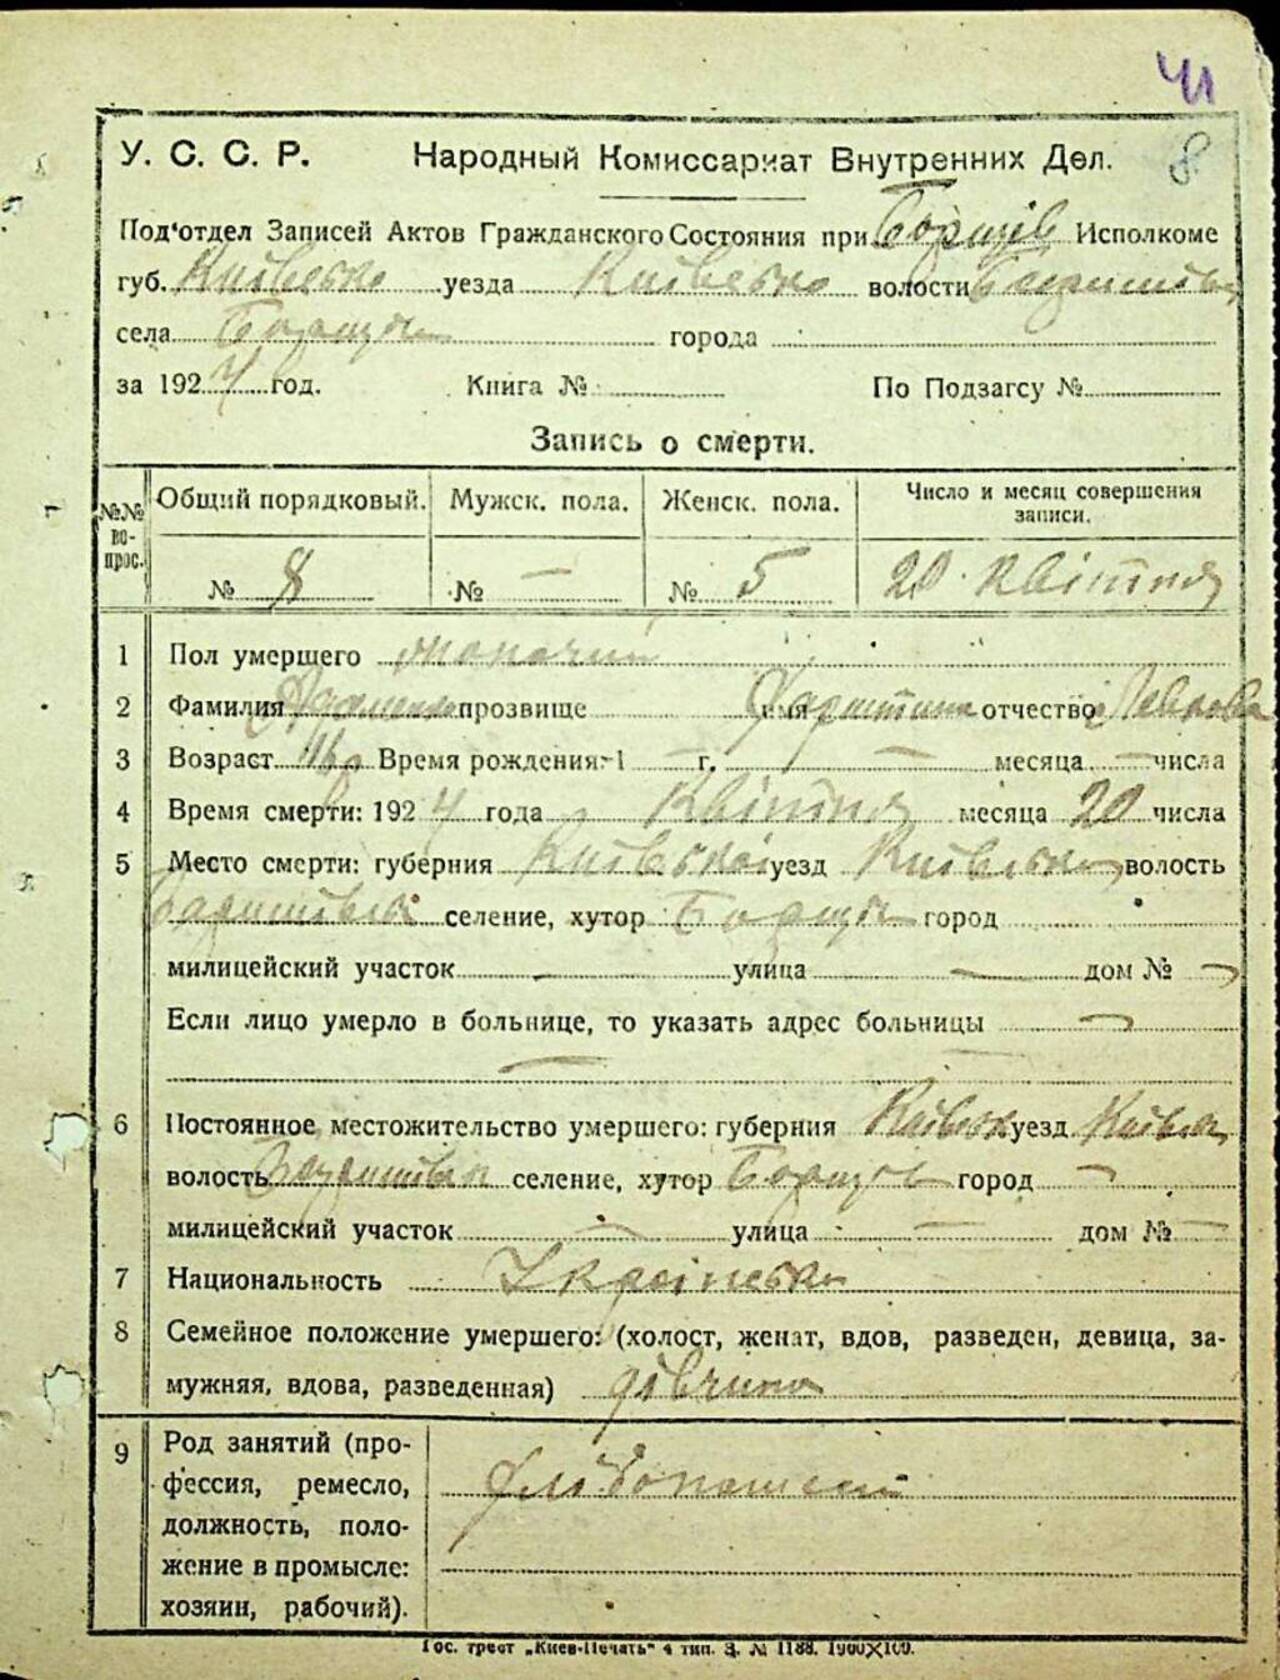 41
У. С. С. Р. Народный Комиссариат Внутренних Дел. 8
Под‘отдел Записей Актов Гражданского Состояния при Борщів Исполкоме
губ. Київсько уезда Київсько волости
села Борщів города
за 1924 год. Книга № По Подзагсу №
Запись о смерти.
№№ во-прос. Общий порядковый. Мужск. пола. Женск. пола. Число и месяц совершения записи.
№ 8 № — № 5 20 квітня
1 Пол умершего жіночий
2 Фамилия прозвище имя отчество Павлова
3 Возраст Время рождения: 1 — г. — месяца — числа
4 Время смерти: 1924 года Квітня месяца 20 числа
5 Место смерти: губерния Київської уезд Київсько волость
селение, хутор Борщів город
милицейский участок — улица — дом № —
Если лицо умерло в больнице, то указать адрес больницы —
—
6 Постоянное местожительство умершего: губерния Київськ уезд Київськ
волость селение, хутор Борщів город —
милицейский участок — улица — дом № —
7 Национальность Українська
8 Семейное положение умершего: (холост, женат, вдов, разведен, девица, за-
мужняя, вдова, разведенная) дівчина
9 Род занятий (про-
фессия, ремесло,
должность, поло-
жение в промысле:
хозяин, рабочий).
Гос. трест „Киев-Печать“ 4 тип. З. № 1188. 1900X100.